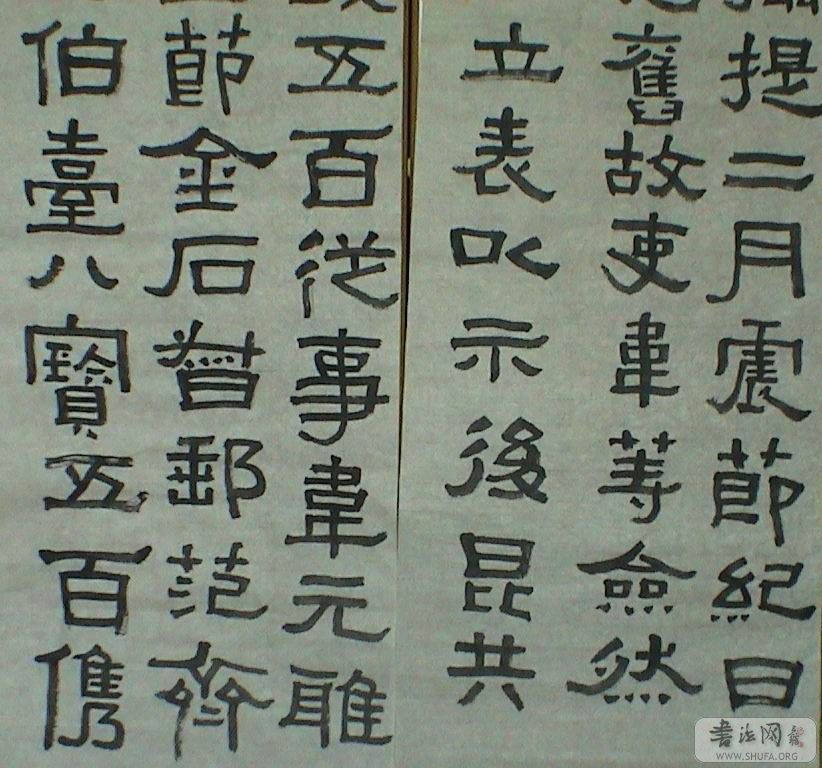 提二月震節紀日
舊故吏韋等僉然
立表以示後昆共
五百從事韋元雅
節金石督郵范齊
伯臺八寶五百儁
書法网
WWW.SHUFA.ORG